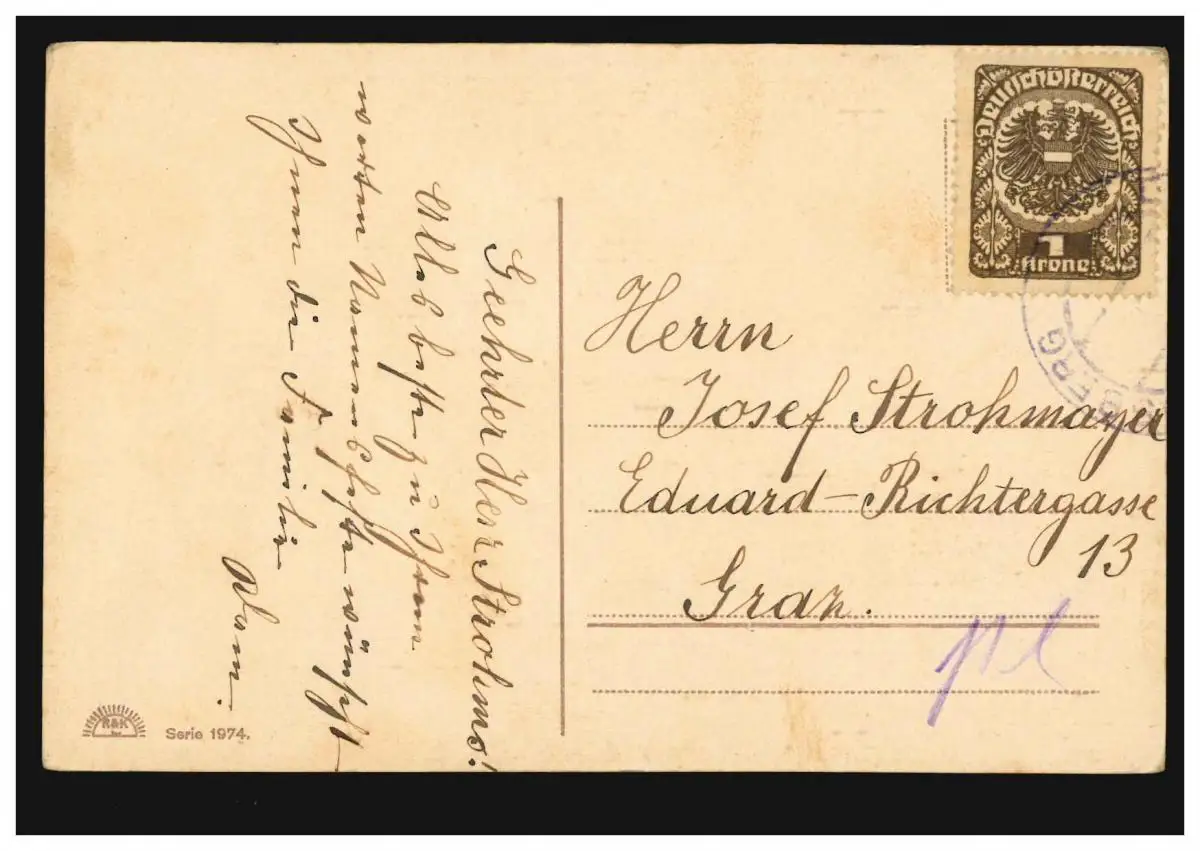 Geehrter Herr Strohms!
Alles beste zu Ihrem
werten Namensfeste wünscht
Ihnen die Familie
Adam.
Deutschösterreich
1
Krone
BERG
Herrn
Josef Strohmayer
Eduard-Richtergasse
13
Graz.
R&K
Serie 1974.